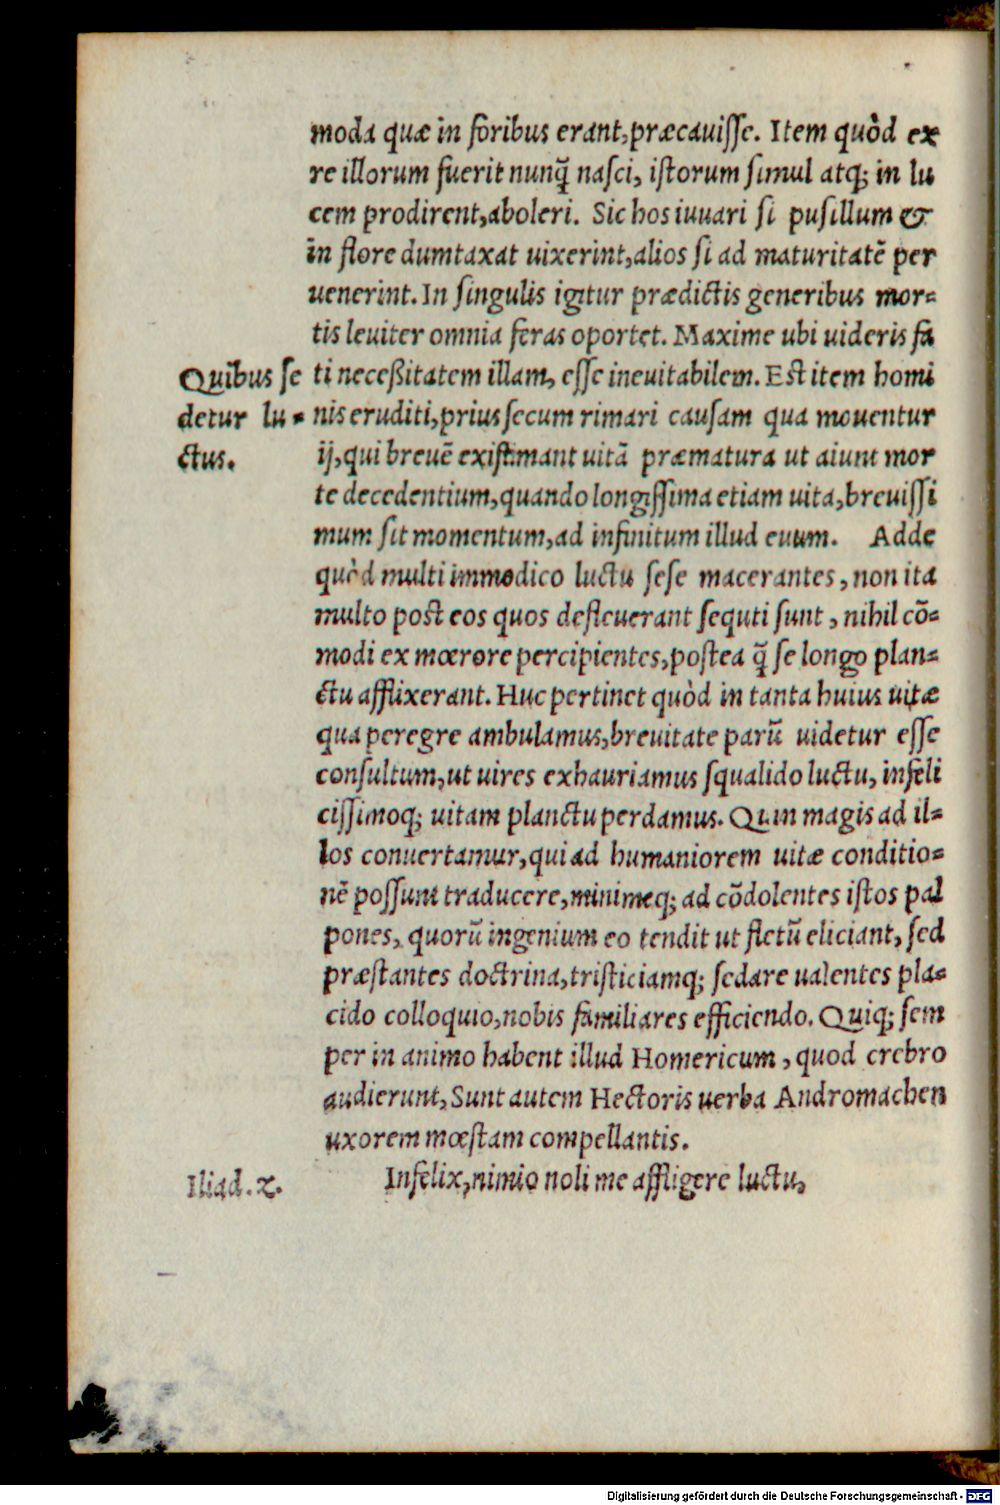 moda quæ in foribus erant, præcauisse. Item quòd ex
re illorum fuerit nunq̃ nasci, istorum simul atq; in lu
cem prodirent, aboleri. Sic hos iuuari si pusillum &
in flore dumtaxat uixerint, alios si ad maturitatē per
uenerint. In singulis igitur prædictis generibus mor=
tis leuiter omnia feras oportet. Maxime ubi uideris fa
ti neceßitatem illam, esse ineuitabilem. Est item homi
nis eruditi, prius secum rimari causam qua mouentur
ij, qui breuē existimant uitā præmatura ut aiunt mor
te decedentium, quando longissima etiam uita, breuissi
mum sit momentum, ad infinitum illud euum. Adde
quòd multi immodico luctu sese macerantes, non ita
multo post eos quos defleuerant sequti sunt, nihil cō=
modi ex mœrore percipientes, postea q̃ se longo plan=
ctu afflixerant. Huc pertinet quòd in tanta huius uitæ
qua peregre ambulamus, breuitate parū uidetur esse
consultum, ut uires exhauriamus squalido luctu, infeli
cissimoq; uitam planctu perdamus. Quin magis ad il=
los conuertamur, qui ad humaniorem uitæ conditio=
nē possunt traducere, minimeq; ad cōdolentes istos pal
pones, quorū ingenium eo tendit ut fletū eliciant, sed
præstantes doctrina, tristiciamq; sedare ualentes pla=
cido colloquio, nobis familiares efficiendo. Quiq; sem
per in animo habent illud Homericum, quod crebro
audierunt, Sunt autem Hectoris uerba Andromachen
uxorem mœstam compellantis.
Infelix, nimio noli me affligere luctu,
Quibus se
detur lu=
ctus.
Iliad. z.
Digitalisierung gefördert durch die Deutsche Forschungsgemeinschaft - DFG